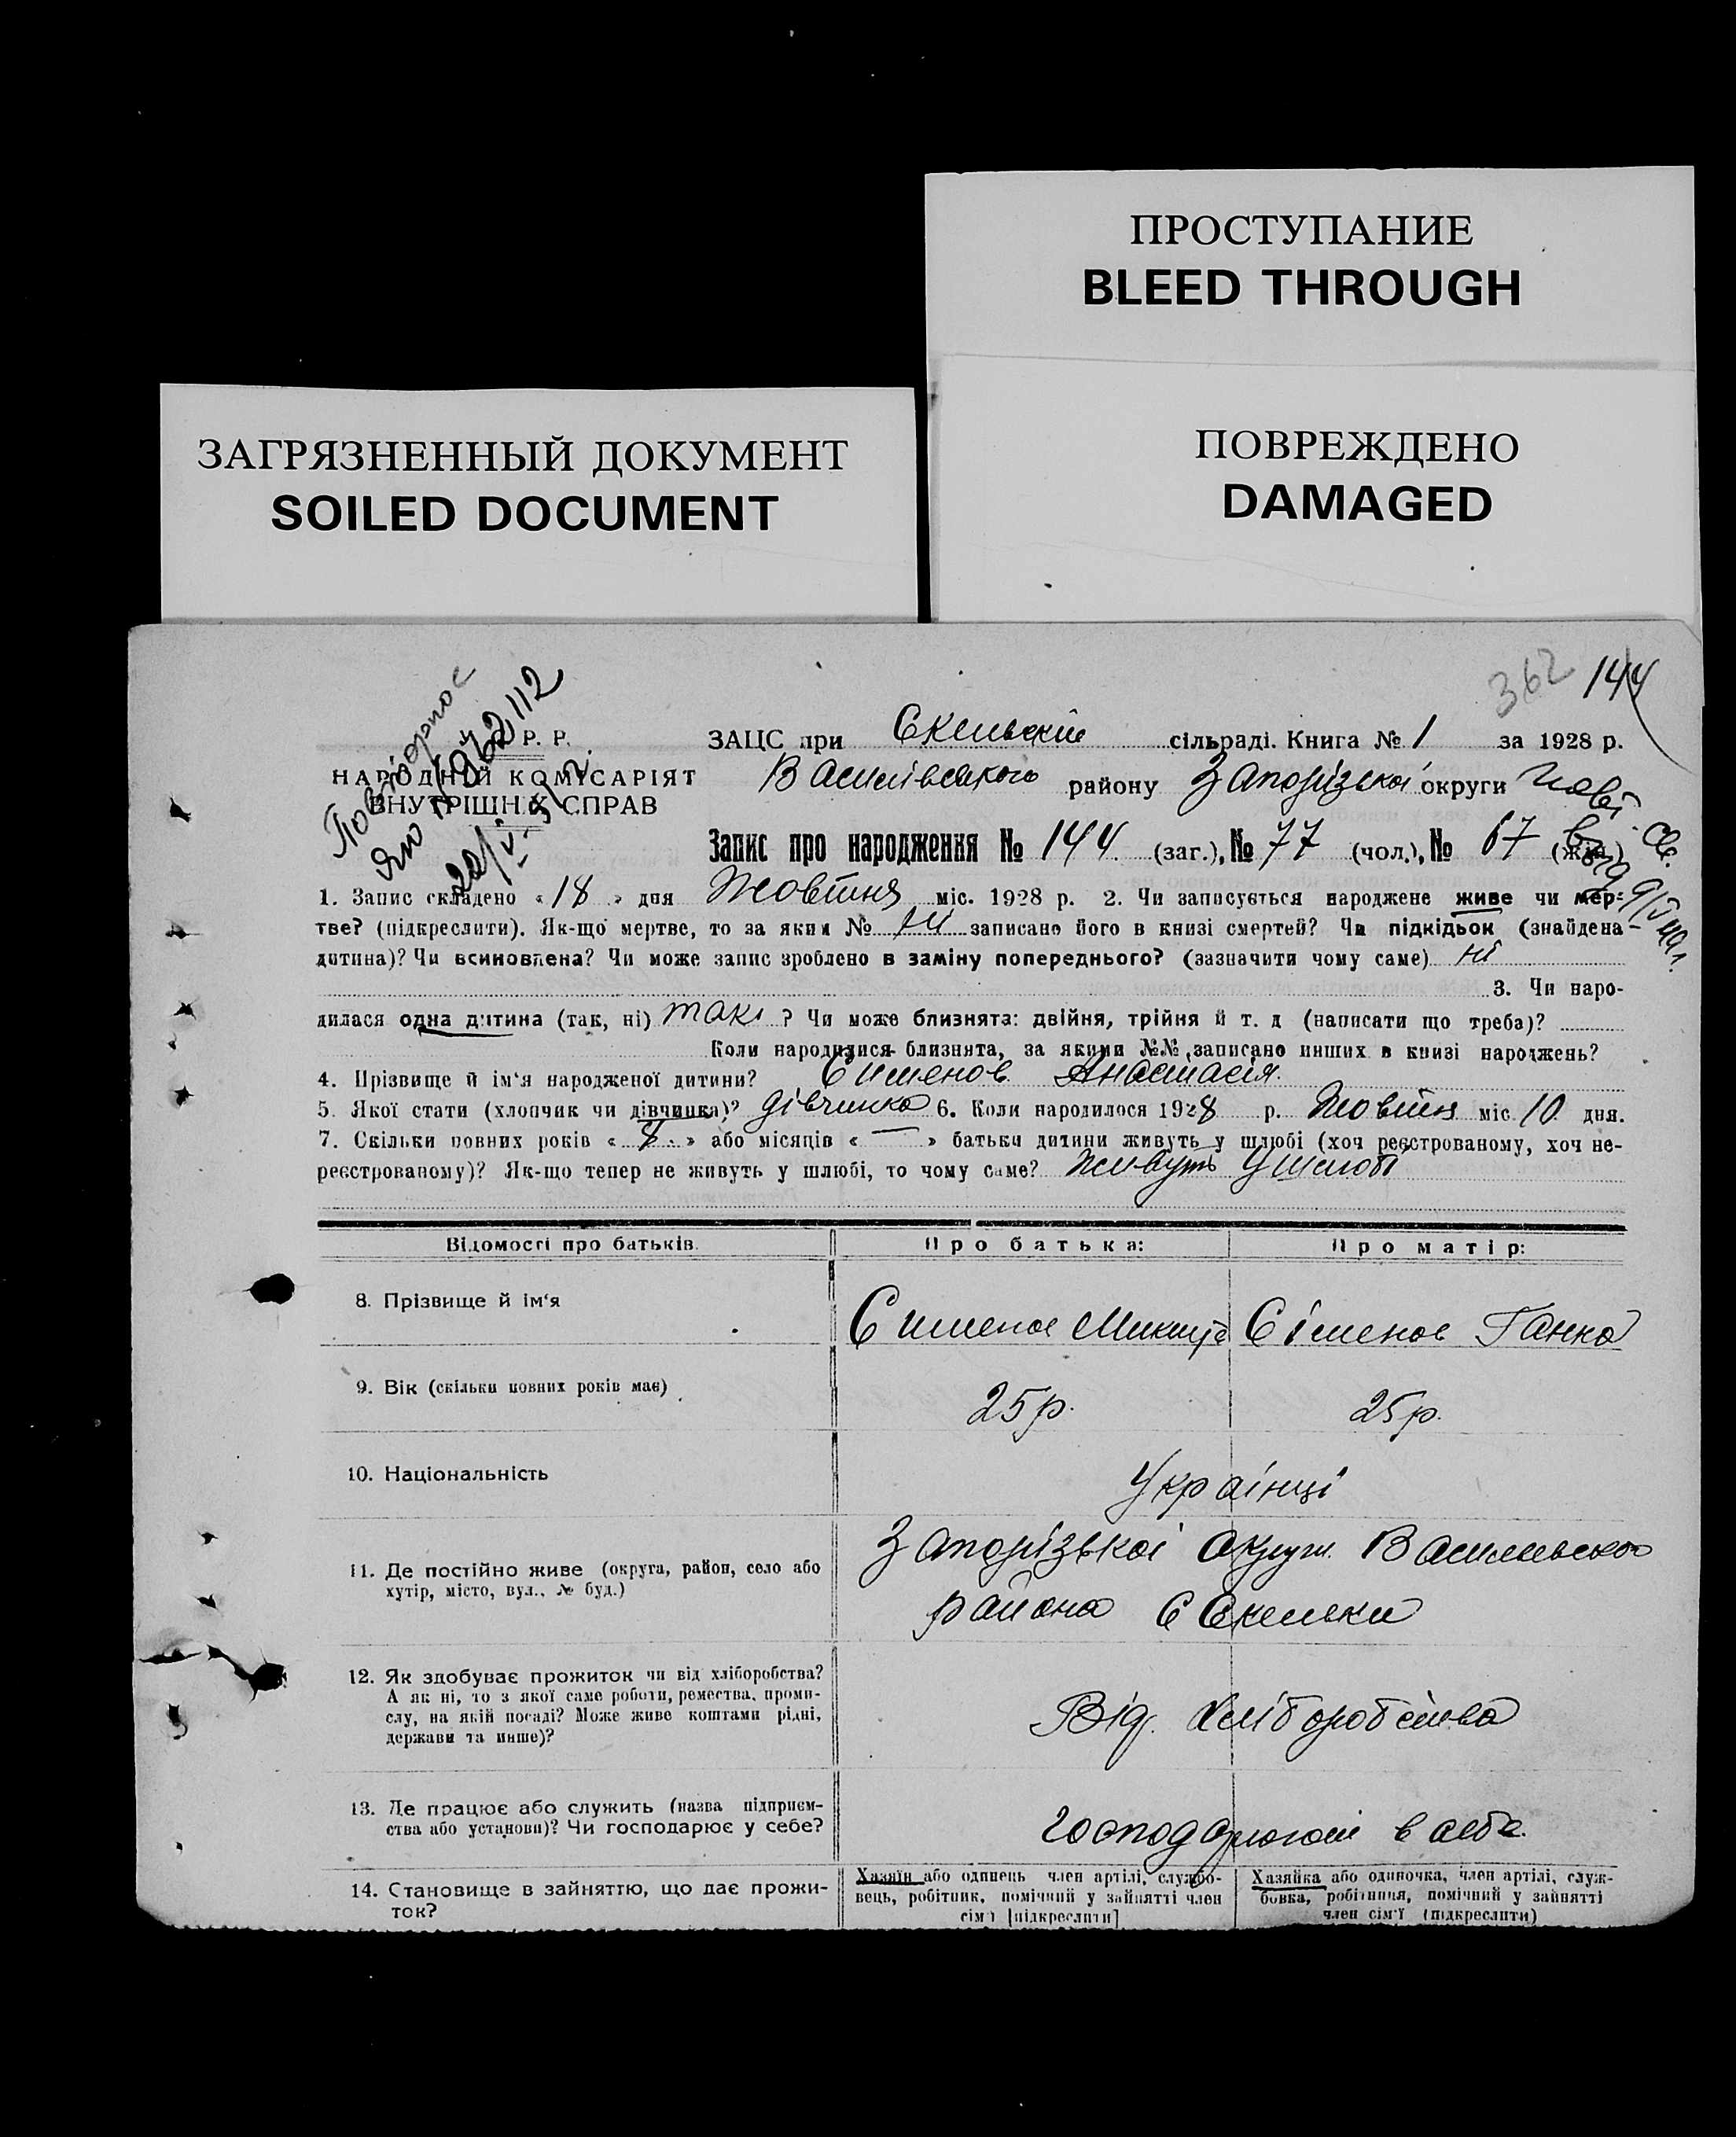 ПРОСТУПАНИЕ
BLEED THROUGH
ЗАГРЯЗНЕННЫЙ ДОКУМЕНТ
SOILED DOCUMENT
ПОВРЕЖДЕНО
DAMAGED
362 144
У. Р. Р.
НАРОДНІЙ КОМІСАРІЯТ
ВНУТРІШНІХ СПРАВ
ЗАЦС при Скельскій сільраді. Книга № 1 за 1928 р.
Василівського району Запорізької округи
Запис про народження № 144 (заг.), № 77 (чол.), № 67 (жін.)
1. Запис складено « 18 » дня Жовтня міс. 1928 р. 2. Чи записується народжене живе чи мер-
тве? (підкреслити). Як-що мертве, то за яким № записано його в книзі смертей? Чи підкідьок (знайдена
дитина)? Чи всиновлена? Чи може запис зроблено в заміну попереднього? (зазначити чому саме) ні
3. Чи наро-
дилася одна дитина (так, ні) так ? Чи може близнята: двійня, трійня й т. д (написати що треба)?
Коли народилися близнята, за якими №№ записано инших в книзі народжень?
4. Прізвище й ім'я народженої дитини? Сименов Анастасія.
5. Якої стати (хлопчик чи дівчинка)? дівчинка 6. Коли народилося 1928 р. Жовтня міс. 10 дня.
7. Скільки повних років « » або місяців « — » батьки дитини живуть у шлюбі (хоч реєстрованому, хоч не-
реєстрованому)? Як-що тепер не живуть у шлюбі, то чому саме? Живуть у шлюбі
Відомості про батьків. Про батька: Про матір:
8. Прізвище й ім'я Сименов Микита Сіменов Ганна
9. Вік (скільки повних років має) 25 р. 25 р.
10. Національність Українці
11. Де постійно живе (округа, район, село або
хутір, місто, вул., № буд.)
Запорізької округи Василівського
района С Скельки
12. Як здобуває прожиток чи від хліборобства?
А як ні, то з якої саме роботи, ремества, проми-
слу, на якій посаді? Може живе коштами рідні,
держави та инше)?
Від. Хліборобства
13. Де працює або служить (назва підприєм-
ства або установи)? Чи господарює у себе?
господарюют в себе.
14. Становище в зайняттю, що дає прожи-
ток?
Хазяїн або одинець член артілі, службо-
вець, робітник, помічний у зайнятті член
сім'ї [підкреслити]
Хазяйка або одиночка, член артілі, служ-
бовка, робітниця, помічний у зайнятті
член сім'ї (підкреслити)